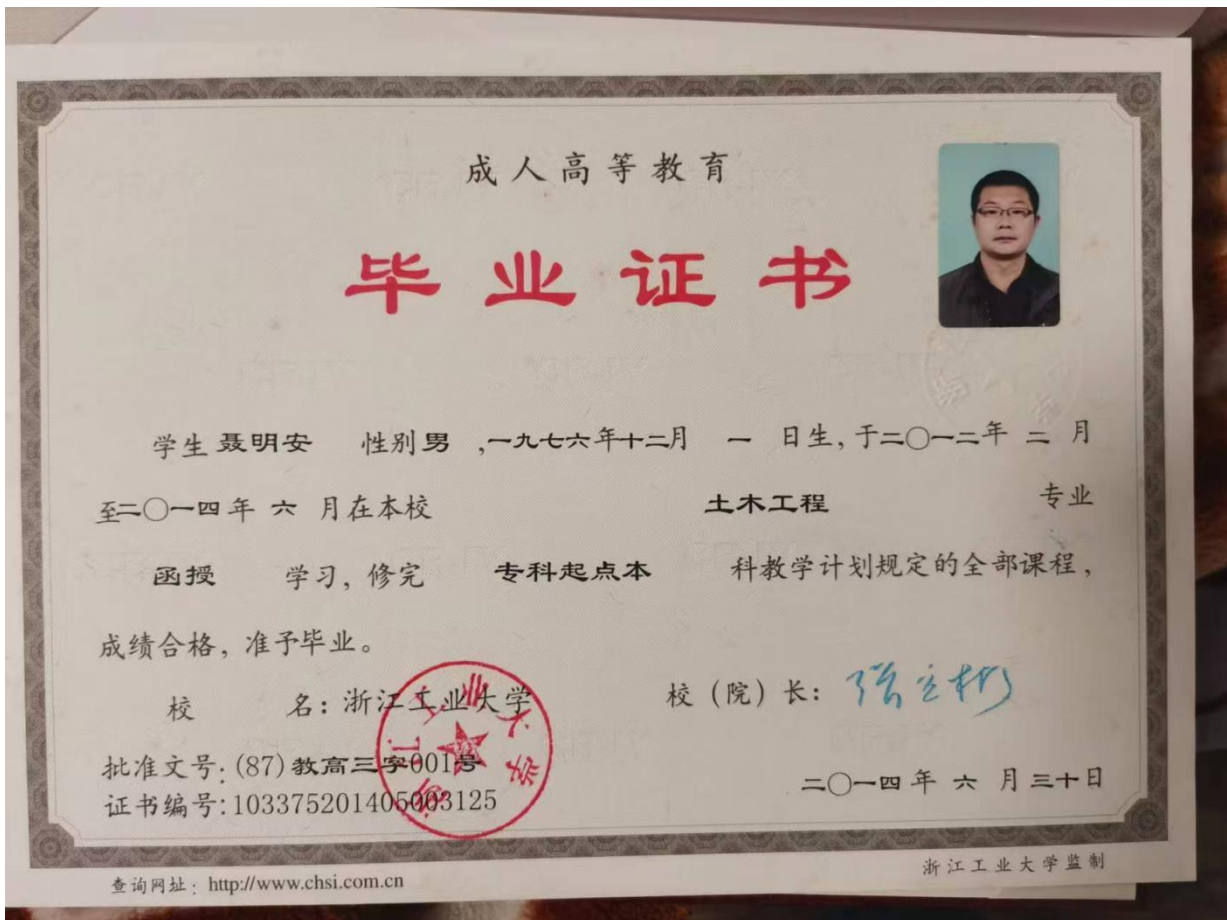 成人高等教育
毕业证书
学生 聂明安 性别 男 ,一九七六年十二月 一 日生, 于二〇一二年 二 月
至二〇一四年 六 月在本校 土木工程 专业
函授 学习, 修完 专科起点本 科教学计划规定的全部课程,
成绩合格, 准予毕业。
校 名: 浙江工业大学 校 (院) 长: 张立彬
浙江工业大学
批准文号: (87)教高三字001号
证书编号: 103375201405003125
二〇一四年 六 月三十日
浙江工业大学监制
查询网址: http://www.chsi.com.cn